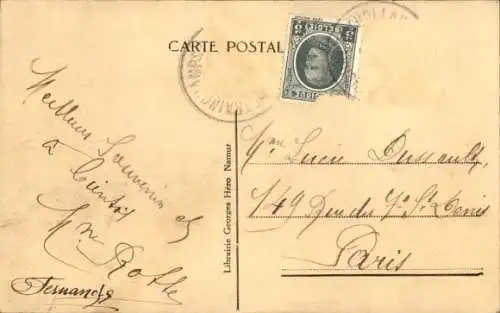 CARTE POSTALE
BELGIE
5
Meilleur Souvenir
à bientôt
Mme Rolle
Fernande
Librairie Georges Héro Namur
Mme Lucie Dussault
149 Rue du Fg St Denis
Paris